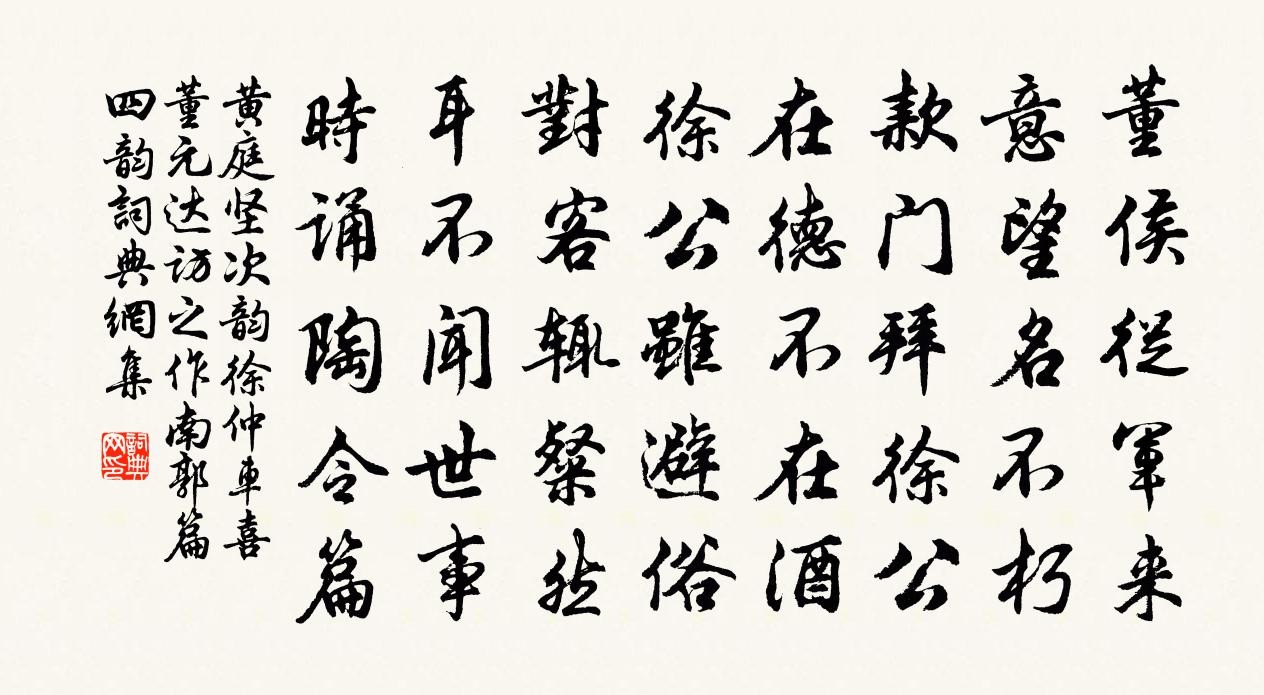 董侯從軍来
意望名不朽
款门拜徐公
在德不在酒
徐公雖避俗
對客辄粲然
耳不闻世事
時诵陶令篇
黄庭坚次韵徐仲車喜
董元达访之作南郭篇
四韵詞典網集
詞典网印